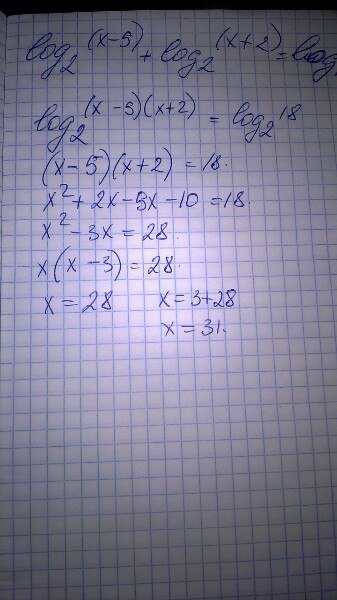 log₂(x-5) + log₂(x+2) = log
log₂(x-5)(x+2) = log₂18
(x-5)(x+2) = 18.
x² + 2x - 5x - 10 = 18.
x² - 3x = 28.
x(x-3) = 28.
x = 28 x = 3+28
x = 31.